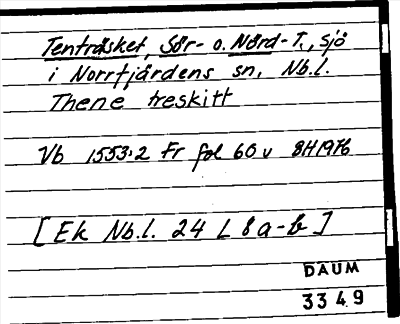 Tenträsket, Sör- o. Nörd-T., sjö
i Norrfjärdens sn, Nb.l.
Thene treskitt
Vb 1553:2 Fr fol 60 v 8H1976
[Ek Nb.l. 24 L 8 a-b]
DAUM
3349